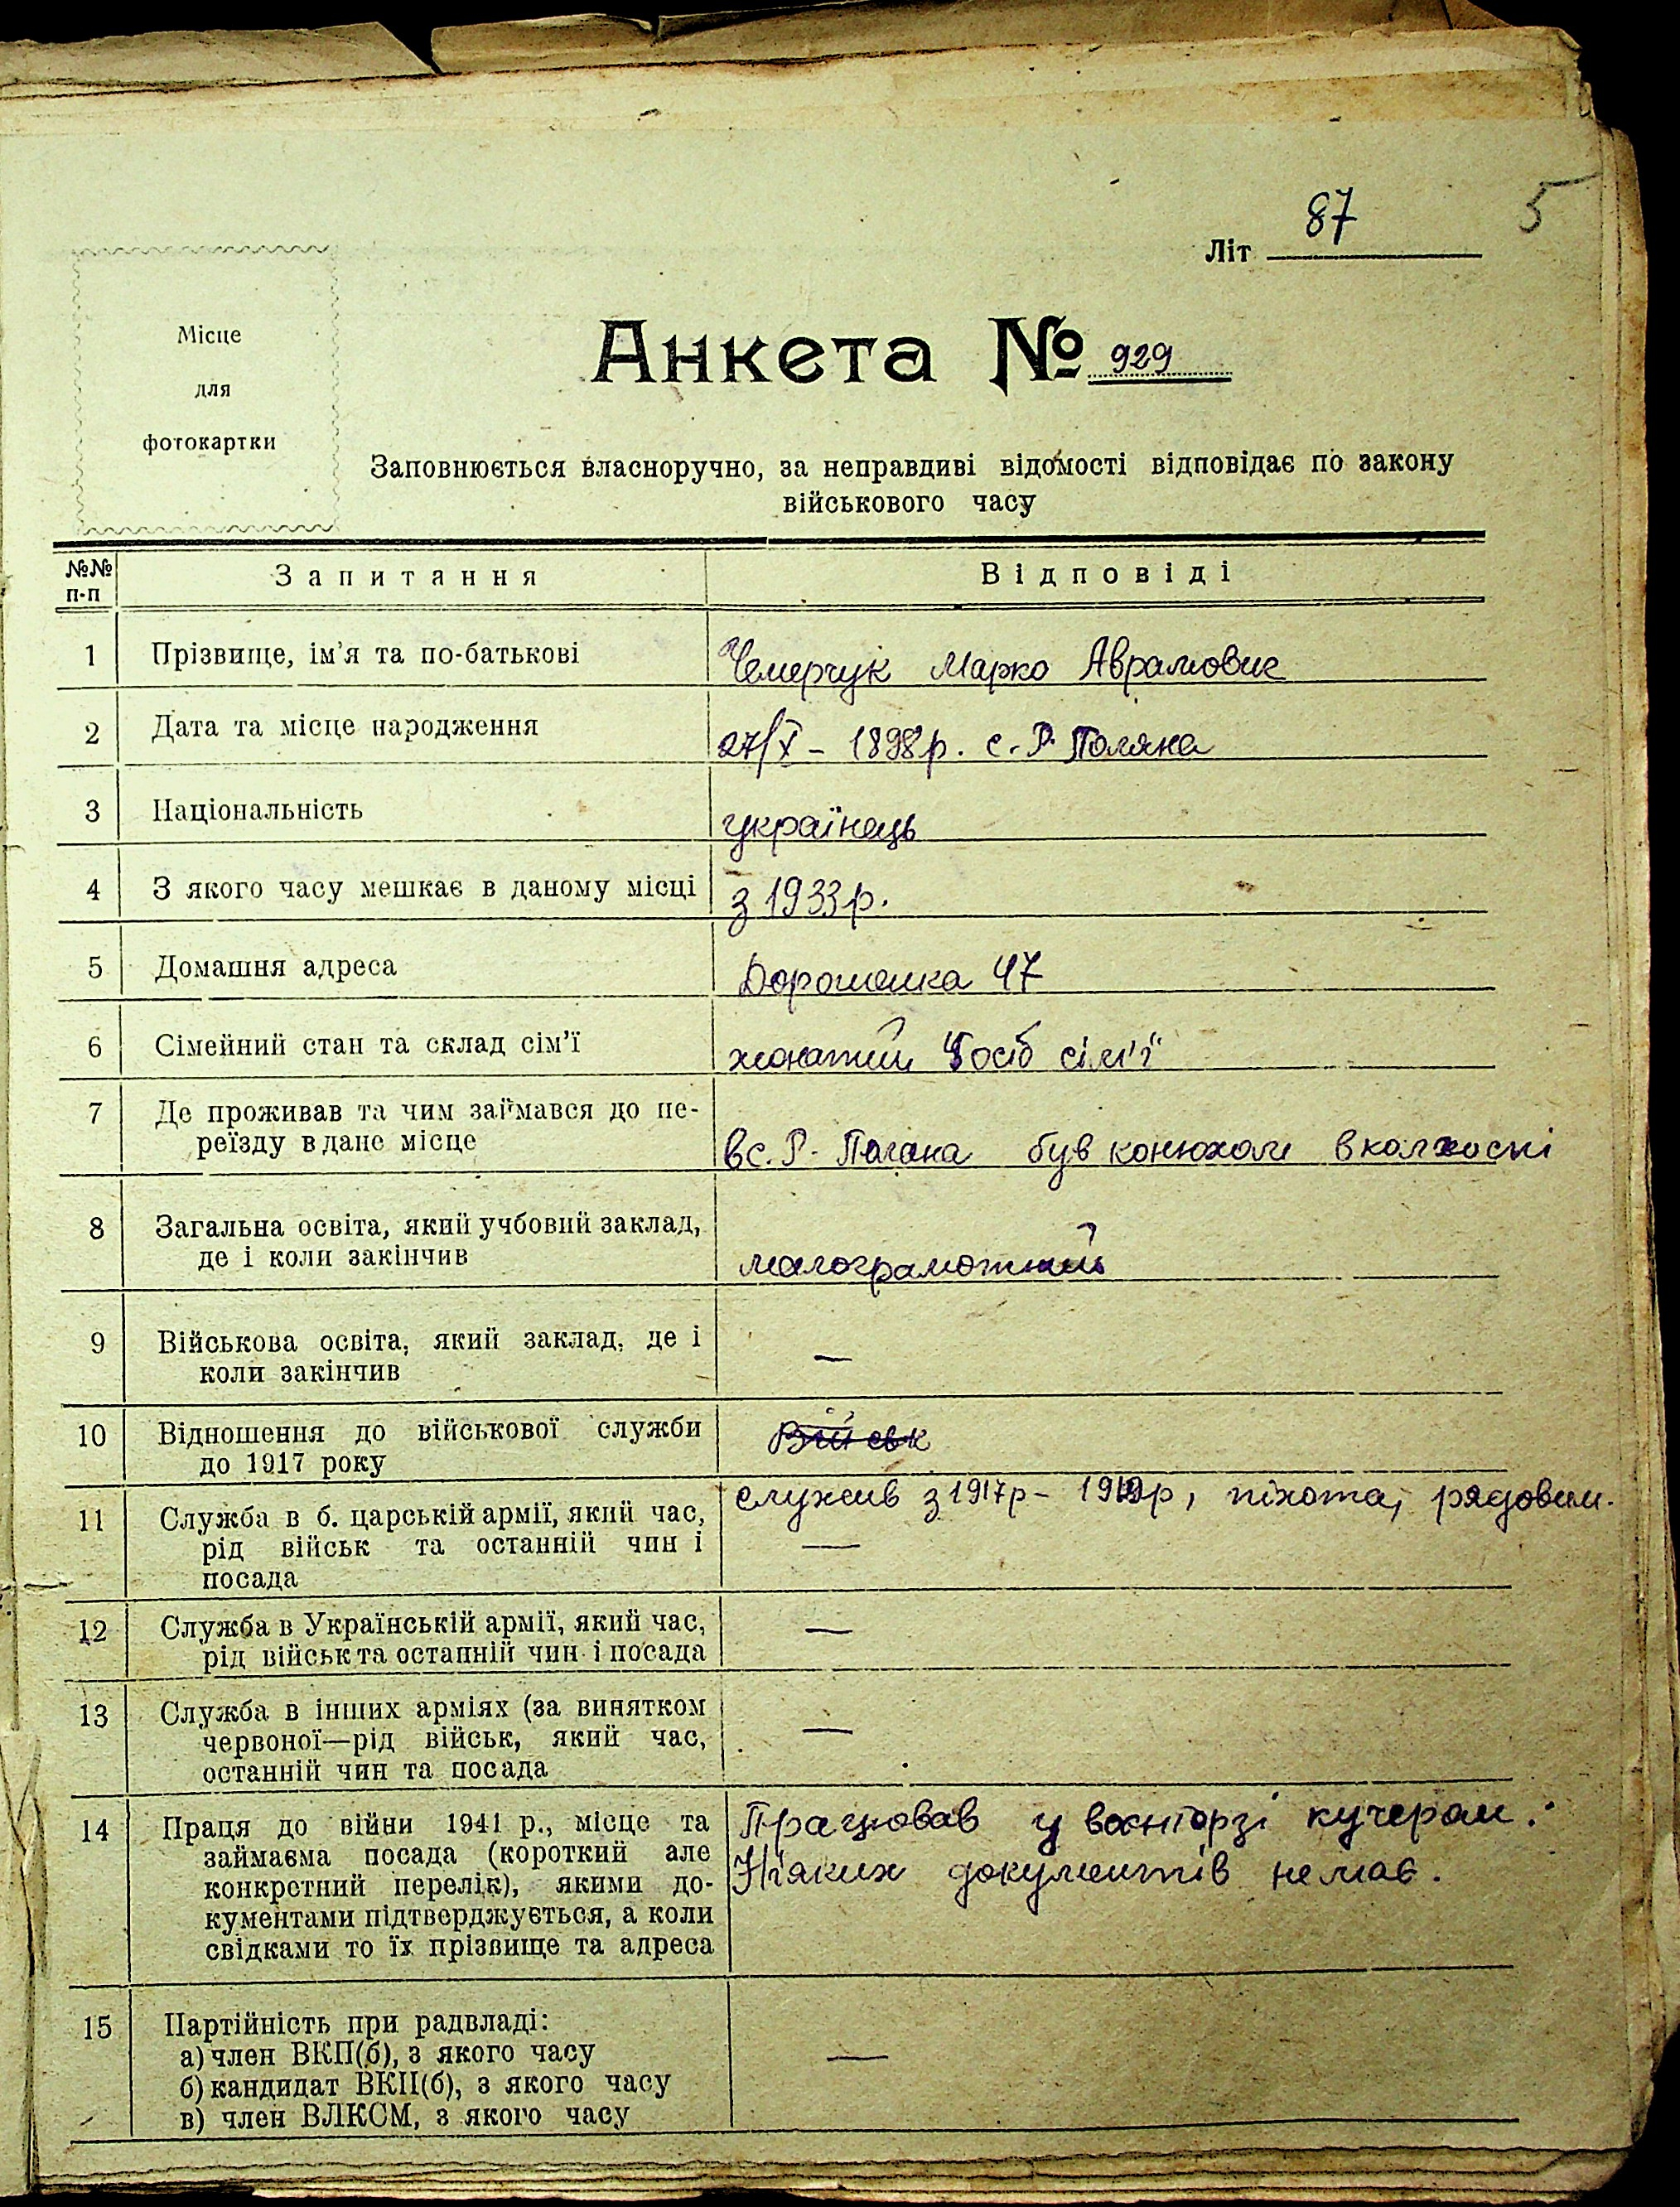 87
5
Літ
Місце
для
фотокартки
Анкета № 929
Заповнюється власноручно, за неправдиві відомості відповідає по закону
військового часу
№№ п-п Запитання Відповіді
1 Прізвище, ім'я та по-батькові Чемерчук Марко Аврамович
2 Дата та місце народження 27/X – 1898 р. с. Р. Поляна
3 Національність українець
4 З якого часу мешкає в даному місці з 1933 р.
5 Домашня адреса Дорошенка 47
6 Сімейний стан та склад сім'ї жонатий осіб сім'ї
7 Де проживав та чим займався до пе-
реїзду в дане місце в с. Р. Поляна був конюхом в колхоспі
8 Загальна освіта, який учбовий заклад,
де і коли закінчив малограмотний
9 Військова освіта, який заклад, де і
коли закінчив —
10 Відношення до військової служби
до 1917 року Військ
служив з 1917 р – 1919 р, піхота, рядовим.
11 Служба в б. царській армії, який час,
рід військ та останній чин і —
посада
12 Служба в Українській армії, який час,
рід військ та останній чин і посада —
13 Служба в інших арміях (за винятком
червоної—рід військ, який час, —
останній чин та посада
14 Праця до війни 1941 р., місце та Працював у воєнторзі кучером.
займаєма посада (короткий але Ніяких документів немає.
конкретний перелік), якими до-
кументами підтверджується, а коли
свідками то їх прізвище та адреса
15 Партійність при радвладі:
а) член ВКП(б), з якого часу —
б) кандидат ВКП(б), з якого часу
в) член ВЛКСМ, з якого часу